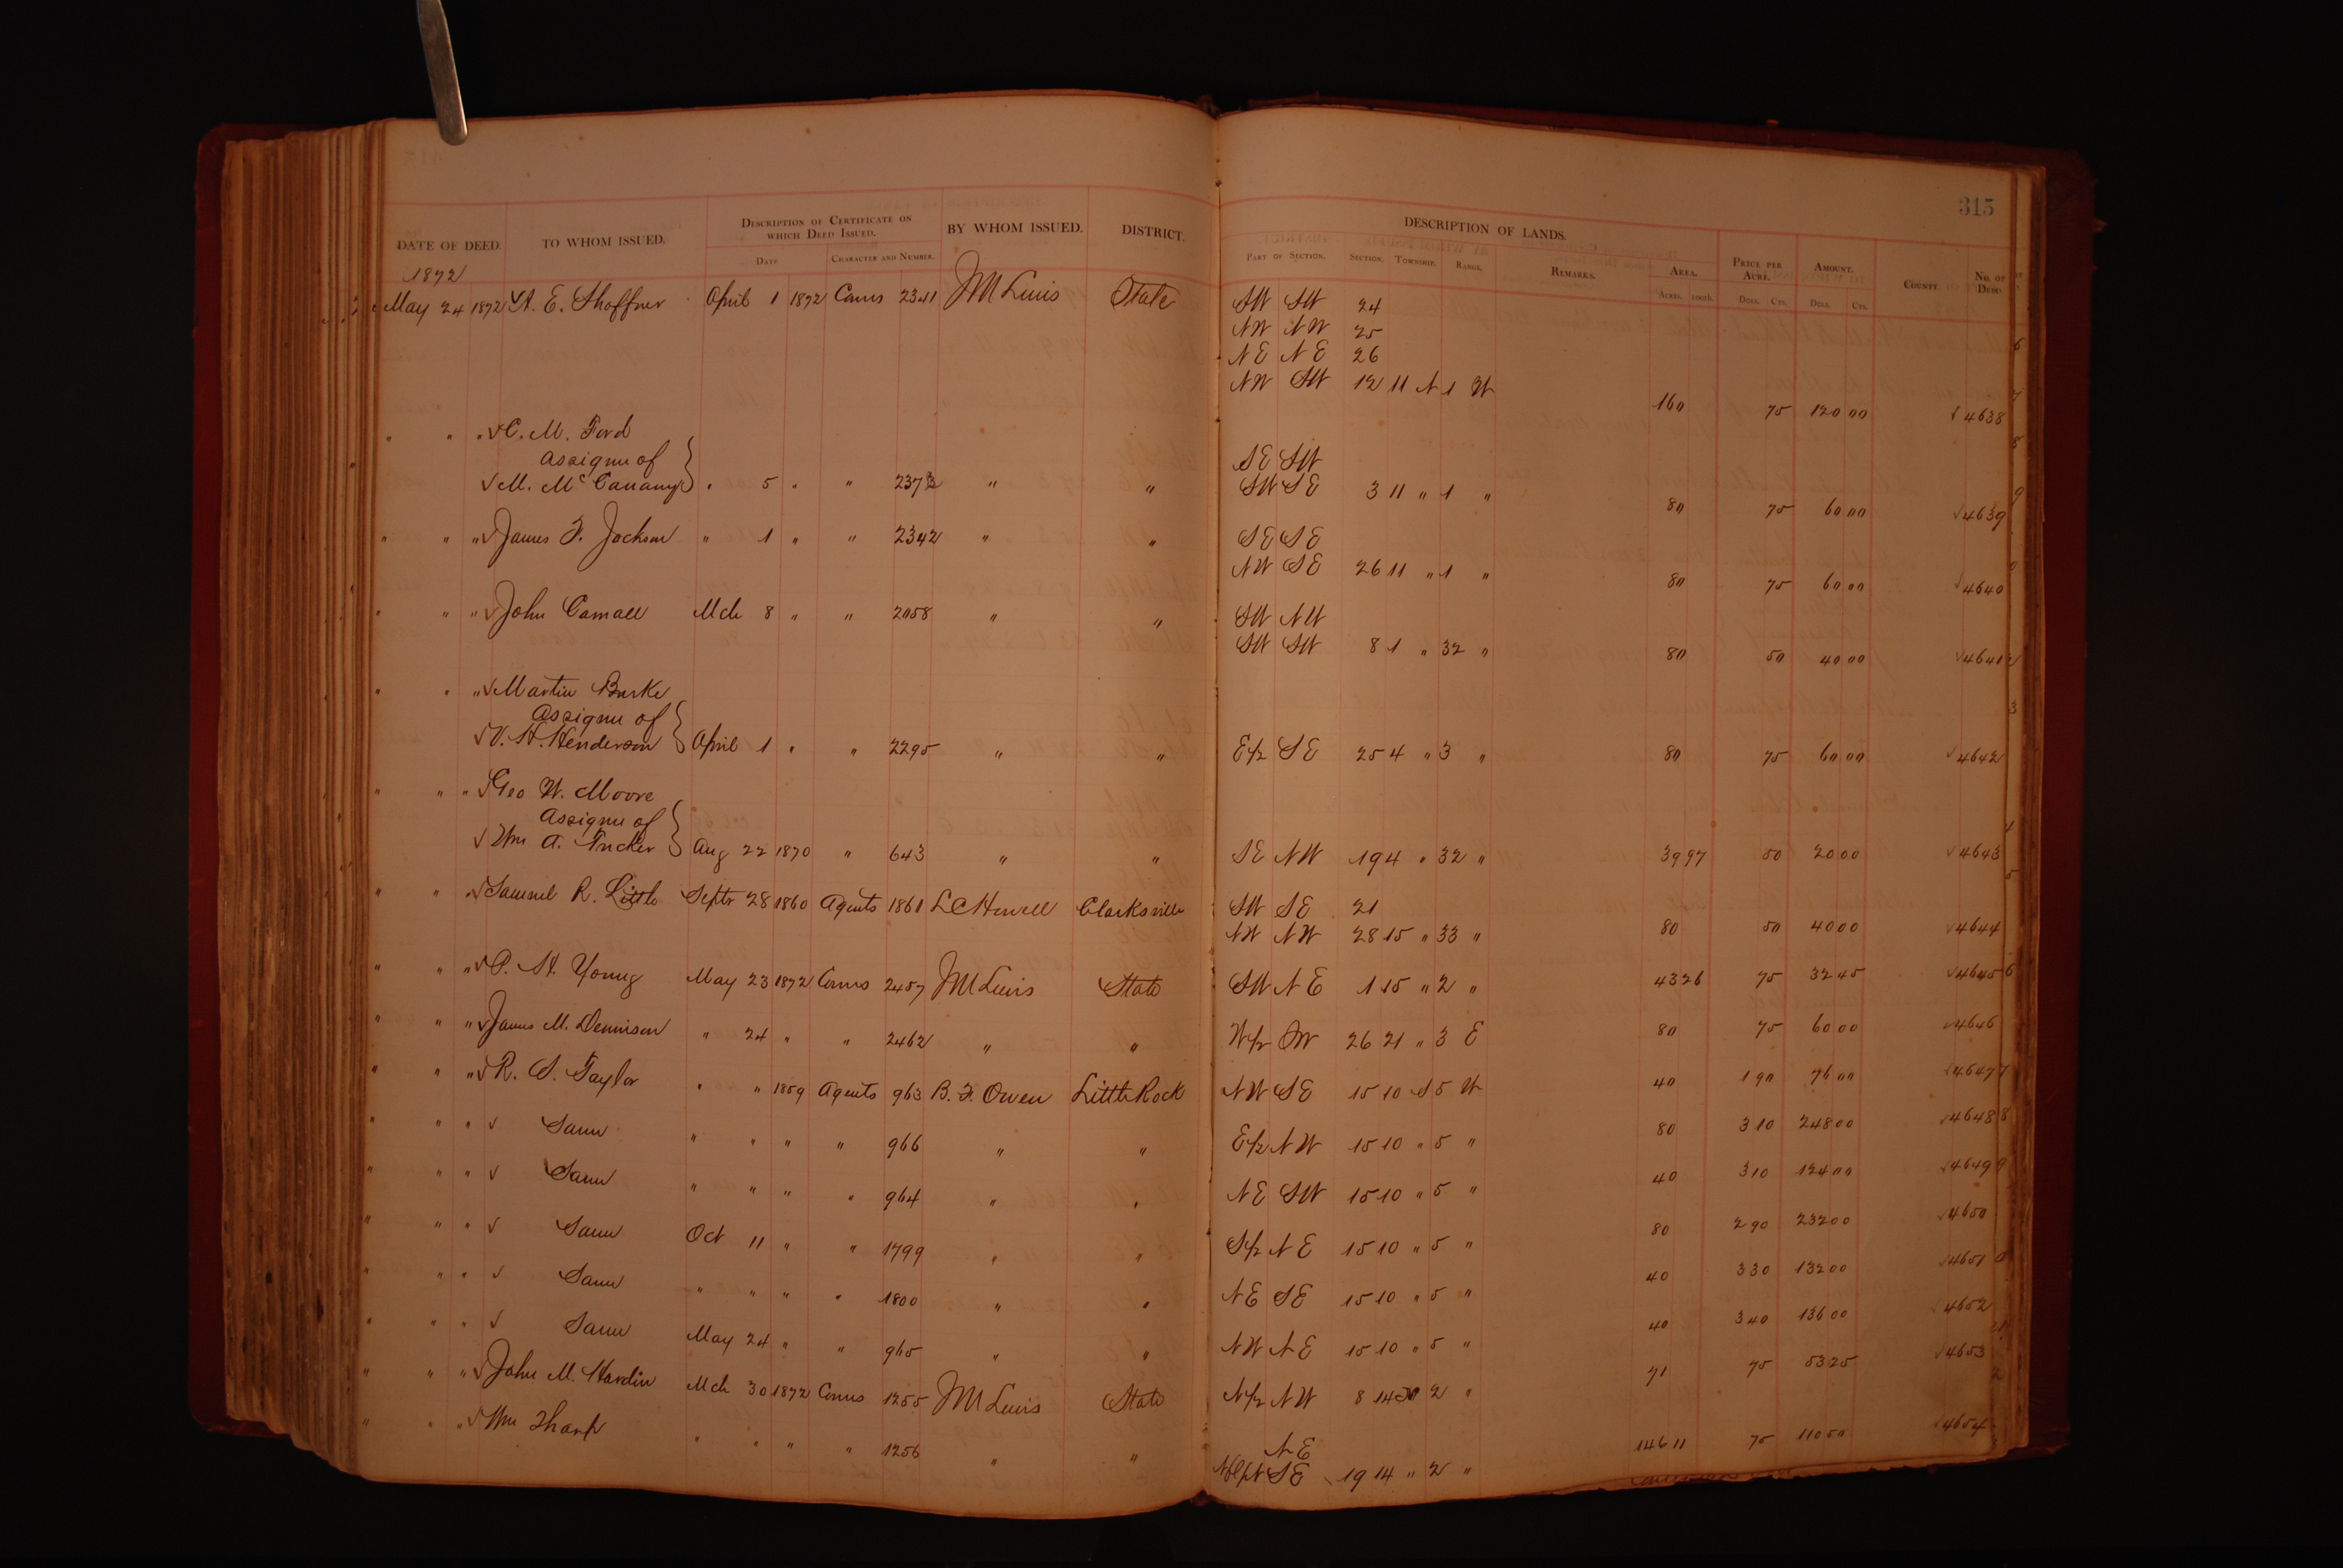 315
DATE OF DEED. TO WHOM ISSUED. DESCRIPTION OF CERTIFICATE ON WHICH DEED ISSUED. BY WHOM ISSUED. DISTRICT. DESCRIPTION OF LANDS. PRICE PER ACRE. AMOUNT. COUNTY NO. OF DEED
DATE CHARACTER AND NUMBER. PART OF SECTION. SECTION. TOWNSHIP. RANGE. REMARKS. AREA. ACRES. 100th. DOLL. CTS. DOLL. CTS.
1872
May 24 1872 A. E. Shoffner April 1 1872 Coms 2341 J M Lewis State SW SW 24
NW NW 25
NE NE 26
NW SW 12 11 N 1 W 160 75 120 00 4638
" " " C. M. Ford
Assignee of SE SW
M. Mc " 5 " " 2373 " " SW SE 3 11 " 1 " 80 75 60 00 4639
" " " James F. Jackson " 1 " " 2342 " " SE SE
NW SE 26 11 " 1 " 80 75 60 00 4640
" " " John Carnall Mch 8 " " 2058 " " SW NW
SW SW 8 1 " 32 " 80 50 40 00 4641
" " " Martin Burke
Assignee of
V. H. Henderson April 1 " " 2295 " " E/2 SE 25 4 " 3 " 80 75 60 00 4642
" " " Geo W. Moore
Assignee of
Wm A. Tucker Aug 22 1870 " 643 " " SE NW 19 4 " 32 " 39 97 50 20 00 4643
" " " Samuel R. Little Septr 28 1860 Agents 1861 L C Howell Clarksville SW SE 21
NW NW 28 15 " 33 " 80 50 40 00 4644
" " " P. H. Young May 23 1872 Coms 2457 J M Lewis State SW NE 1 15 " 2 " 43 26 75 32 45 4645
" " " James M. Dennison " 24 " " 2462 " " W/2 SW 26 21 " 3 E 80 75 60 00 4646
" " " R. S. Taylor " " 1859 Agents 963 B. F. Owen Little Rock NW SE 15 10 S 5 W 40 1 90 76 00 4647
" " " Same " " " " 966 " " E/2 NW 15 10 " 5 " 80 3 10 248 00 4648
" " " Same " " " " 964 " " NE SW 15 10 " 5 " 40 3 10 124 00 4649
" " " Same Oct 11 " " 1799 " " S/2 NE 15 10 " 5 " 80 2 90 232 00 4650
" " " Same " " " " 1800 " " NE SE 15 10 " 5 " 40 3 30 132 00 4651
" " " Same May 24 " " 965 " " NW NE 15 10 " 5 " 40 3 40 136 00 4652
" " " John M. Hardin Mch 30 1872 Coms 1255 J M Lewis State N/2 NW 8 14 2 " 71 75 53 25 4653
" " " Wm Tharp " " " " 1256 " " NE
SE 19 14 " 2 " 146 11 75 110 50 4654